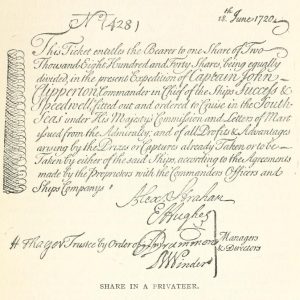 No (428)
18.th June 1720.
This Ticket entitles the Bearer to one Share of Two
Thousand Eight Hundred and Forty Shares, being equally
divided, in the present Expedition of Captain John
Clipperton Commander in Chief of the Ships Success &
Speedwell fitted out and ordered to Cruise in the South-
Seas under His Majesty's Commission and Letters of Mart
issued from the Admiralty; and of all Profits & Advantages
arising by the Prizes or Captures already Taken or to be
Taken by either of the said Ships, according to the Agreements
made by the Proprietors with the Commanders Officers and
Ships Companys
Alex Strahan
E Hughes
H Thayer Trustee by Order of
Managers
& Directors
R Winder
SHARE IN A PRIVATEER.